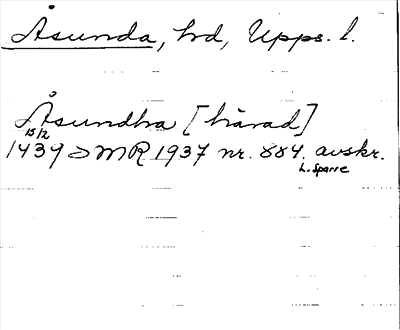 Åsunda, hd, Upps. l.
Åsundha [härad]
15/2
1439 > MR 1937 nr. 884. avskr.
L. Sparre